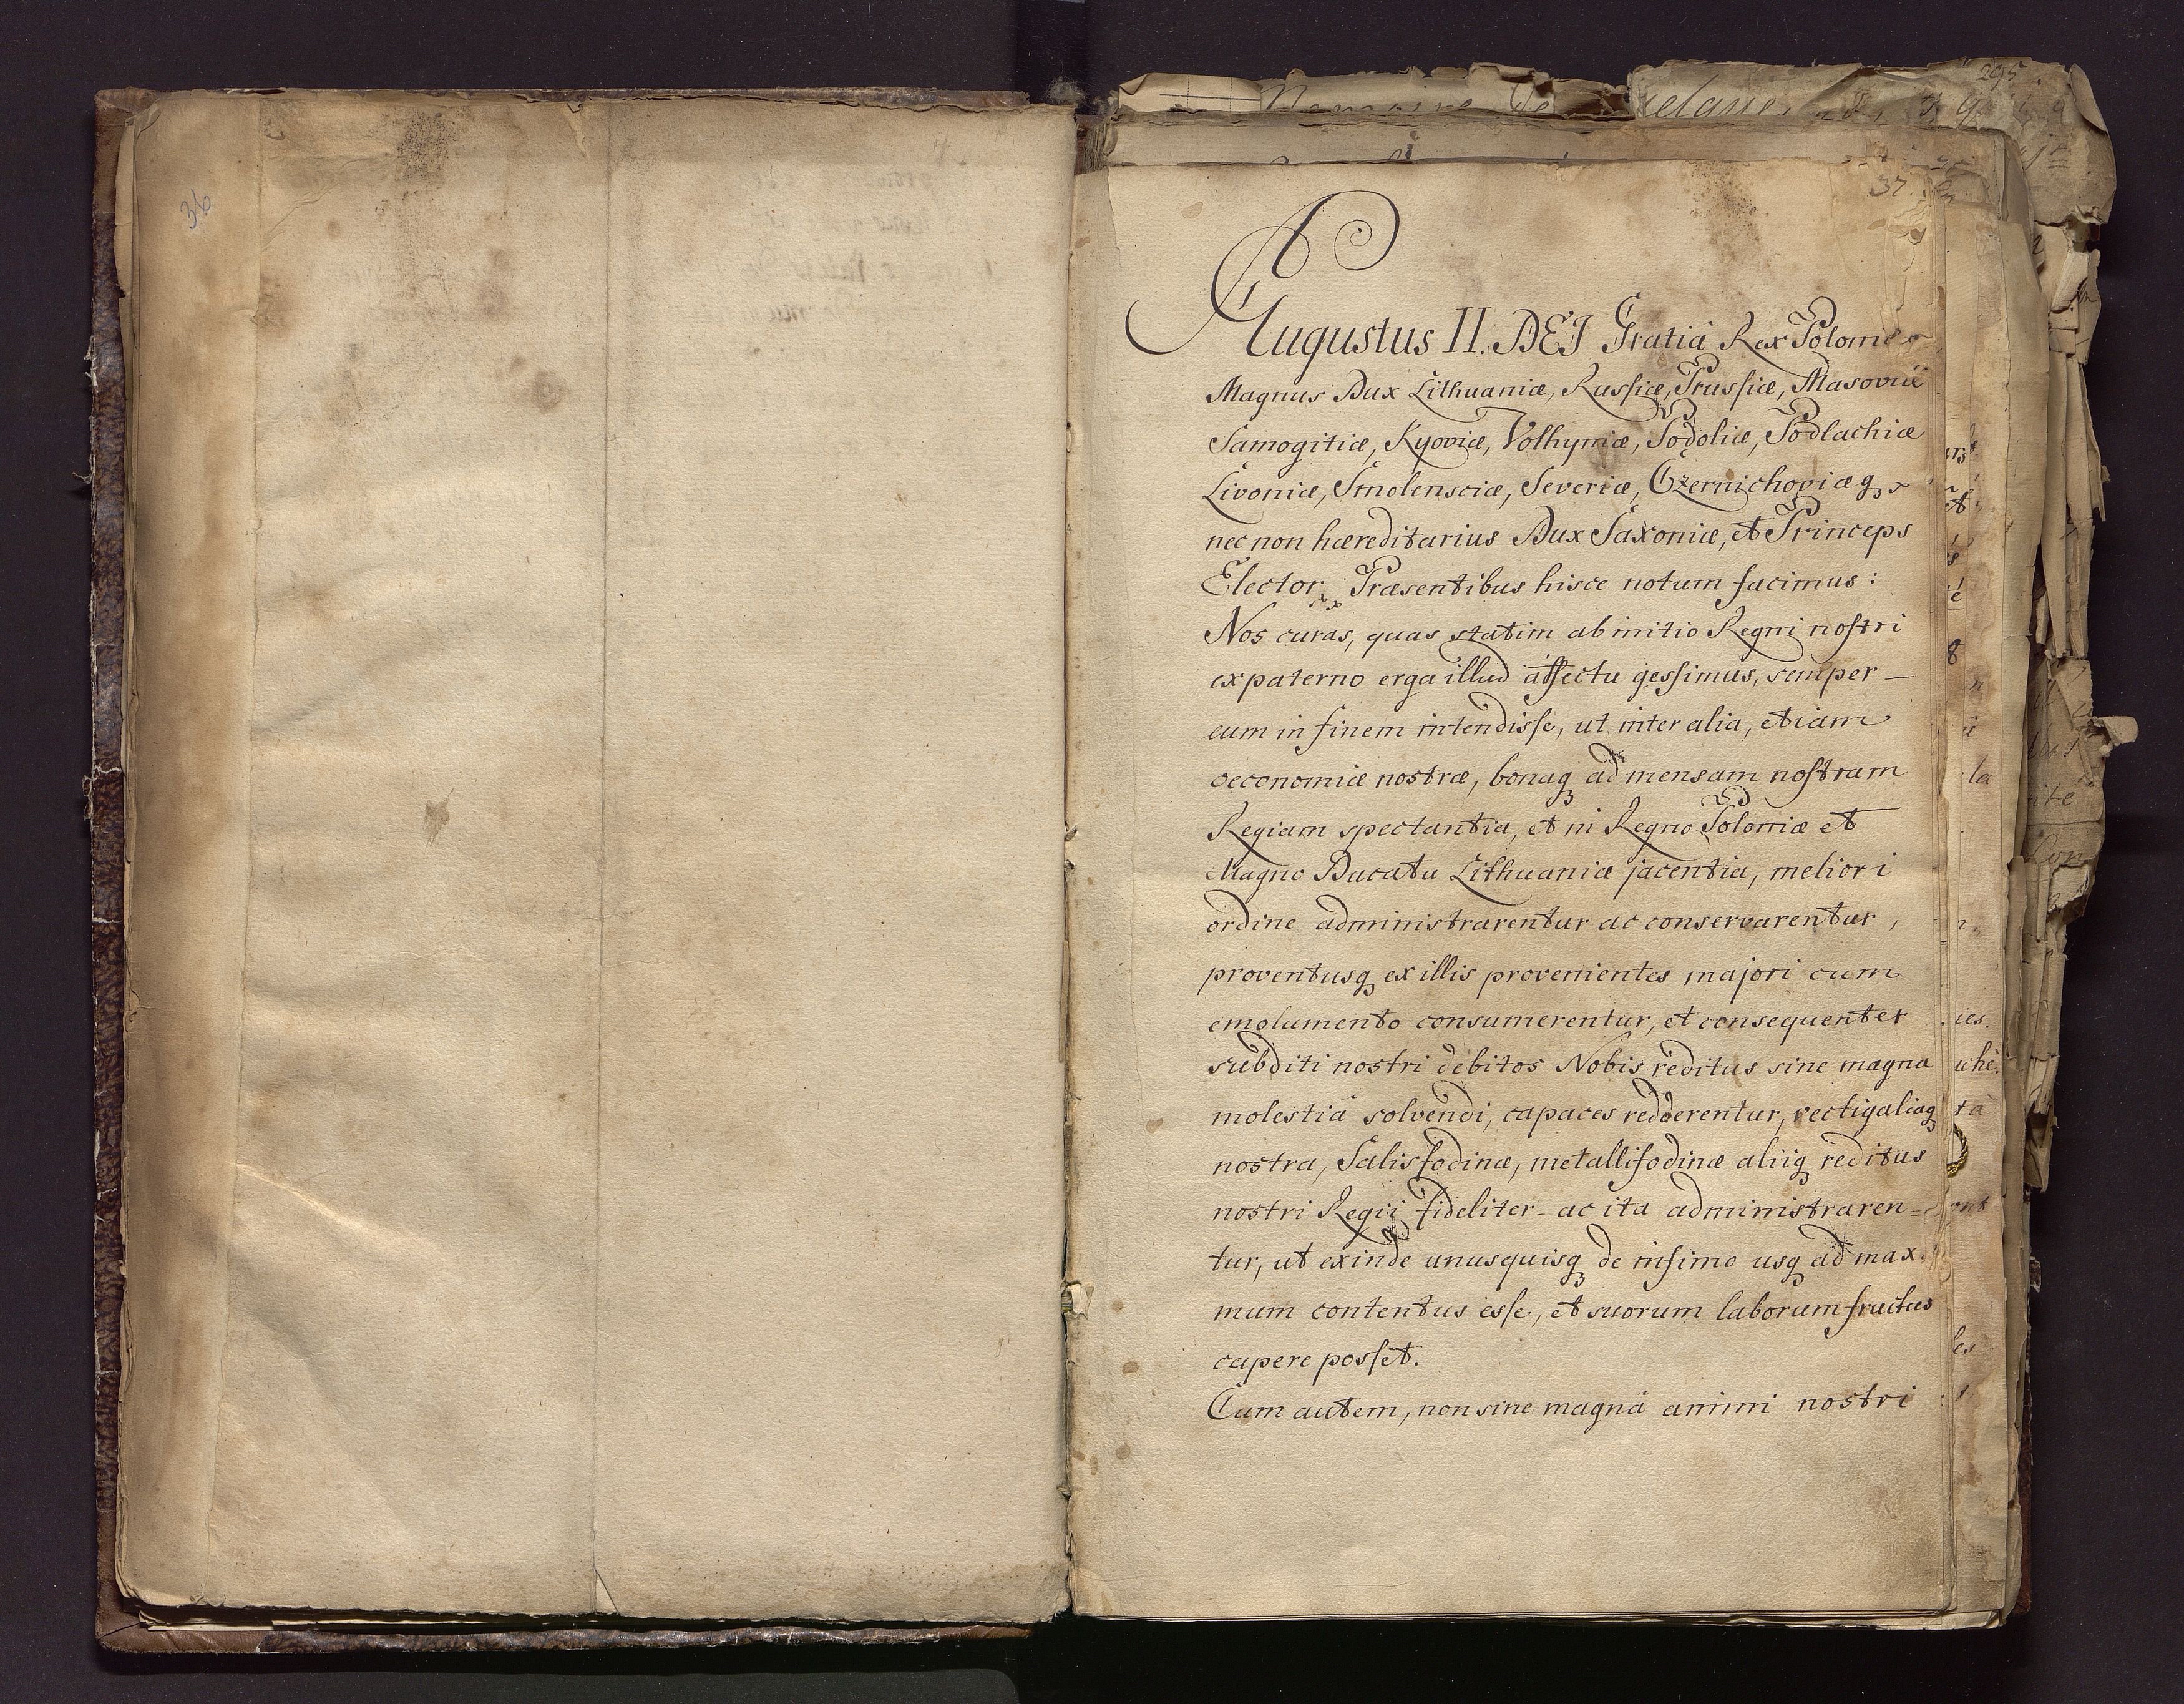 36
37.
Augustus II. DEJ Gratiâ Rex Poloniæ
Magnus Dux Lithuaniæ, Russiæ, Prussiæ, Masoviæ
Samogitiæ, Kyoviæ, Volhyniæ, Podoliæ, Podlachiæ
Livoniæ, Smolensciæ, Severiæ, Czernichoviæq₃
nec non hæreditarius Dux Saxoniæ, et Princeps
Elector Præsentibus hisce notum facimus:
Nos curas, quas statim ab initio Regni nostri
ex paterno erga illud affectu gessimus, semper
eum in finem intendisse, ut inter alia, etiam
oeconomiæ nostræ, bonaq₃ ad mensam nostram
Regiam spectantia, et in Regno Poloniæ et
Magno Ducatu Lithuaniæ jacentia, meliori
ordine administrarentur ac conservarentur,
proventusq₃ ex illis provenientes majori cum
emolumento consumerentur, et consequenter
subditi nostri debitos Nobis reditus sine magna
molestiâ solvendi, capaces redderentur, vectigaliaq₃
nostra, Salisfodinæ, metallifodinæ aliiq₃ reditus
nostri Regii fideliter ac ita administraren=
tur, ut exinde unusquisq₃ de infimo usq₃ ad maxi
mum contentus esse, et suorum laborum fructus
capere posset.
Cum autem, non sine magnâ animi nostri